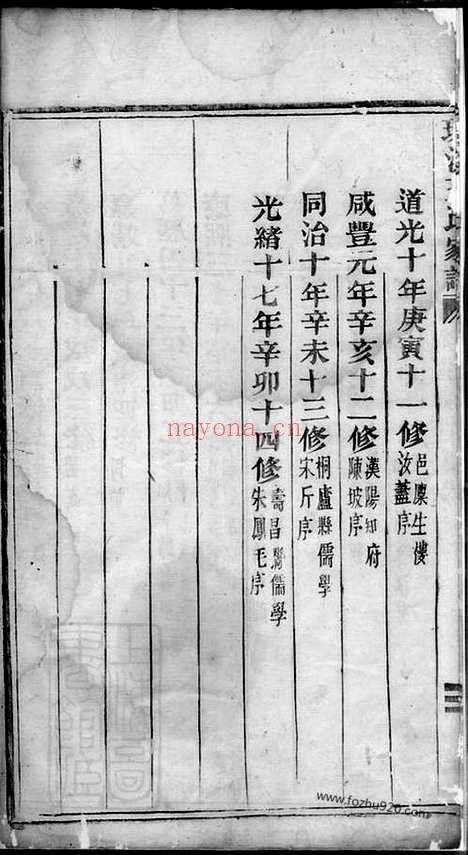 家譜
道光十年庚寅十一修 邑廩生樓汝蓋序
咸豐元年辛亥十二修 漢陽知府陳坡序
同治十年辛未十三修 桐廬縣儒學宋斤序
光緒十七年辛卯十四修 壽昌縣儒學朱鳳毛序
nayona.cn
www.fozhu920.com